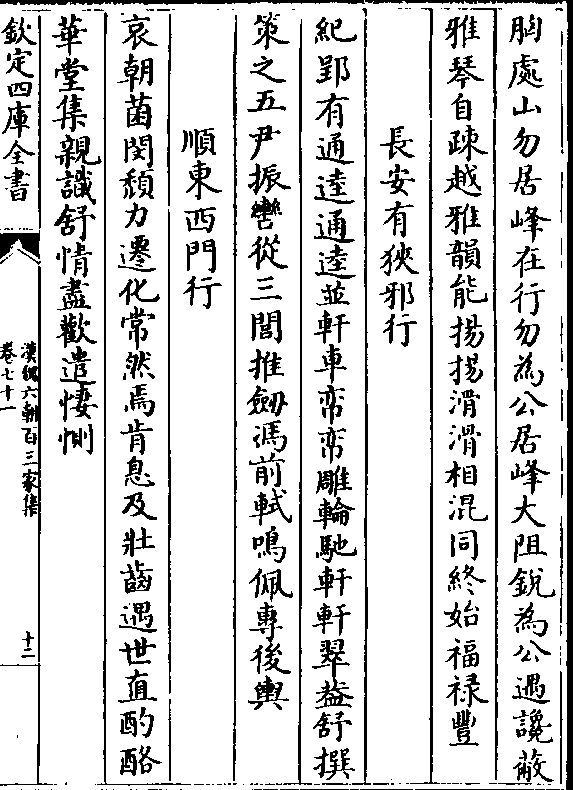 胸處山勿居峰在行勿為公居峰大阻銳為公遇讒蔽
雅琴自疎越雅韻能揚揚滑滑相混同終始福禄豐
長安有狹邪行
紀郢有通逵通逵並軒車帟帟雕輪馳軒軒翠葢舒撰
策之五尹振轡從三閭推劒馮前軾鳴佩專後輿
順東西門行
哀朝菌閔頽力遷化常然焉肯息及壯齒遇世直酌酪
華堂集親識舒情盡歡遣悽惻
欽定四庫全書
漢魏六朝百三家集
卷七十一
十二